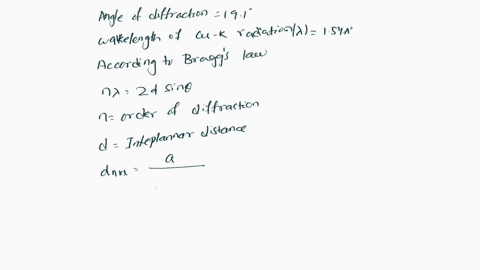 Angle of diffraction = 19.1°
wavelength of Cu-K radiation(λ) = 1.54A°
According to Bragg's law
nλ = 2d sinθ
n = order of diffraction
d = Inteplannar distance
dhkl = a